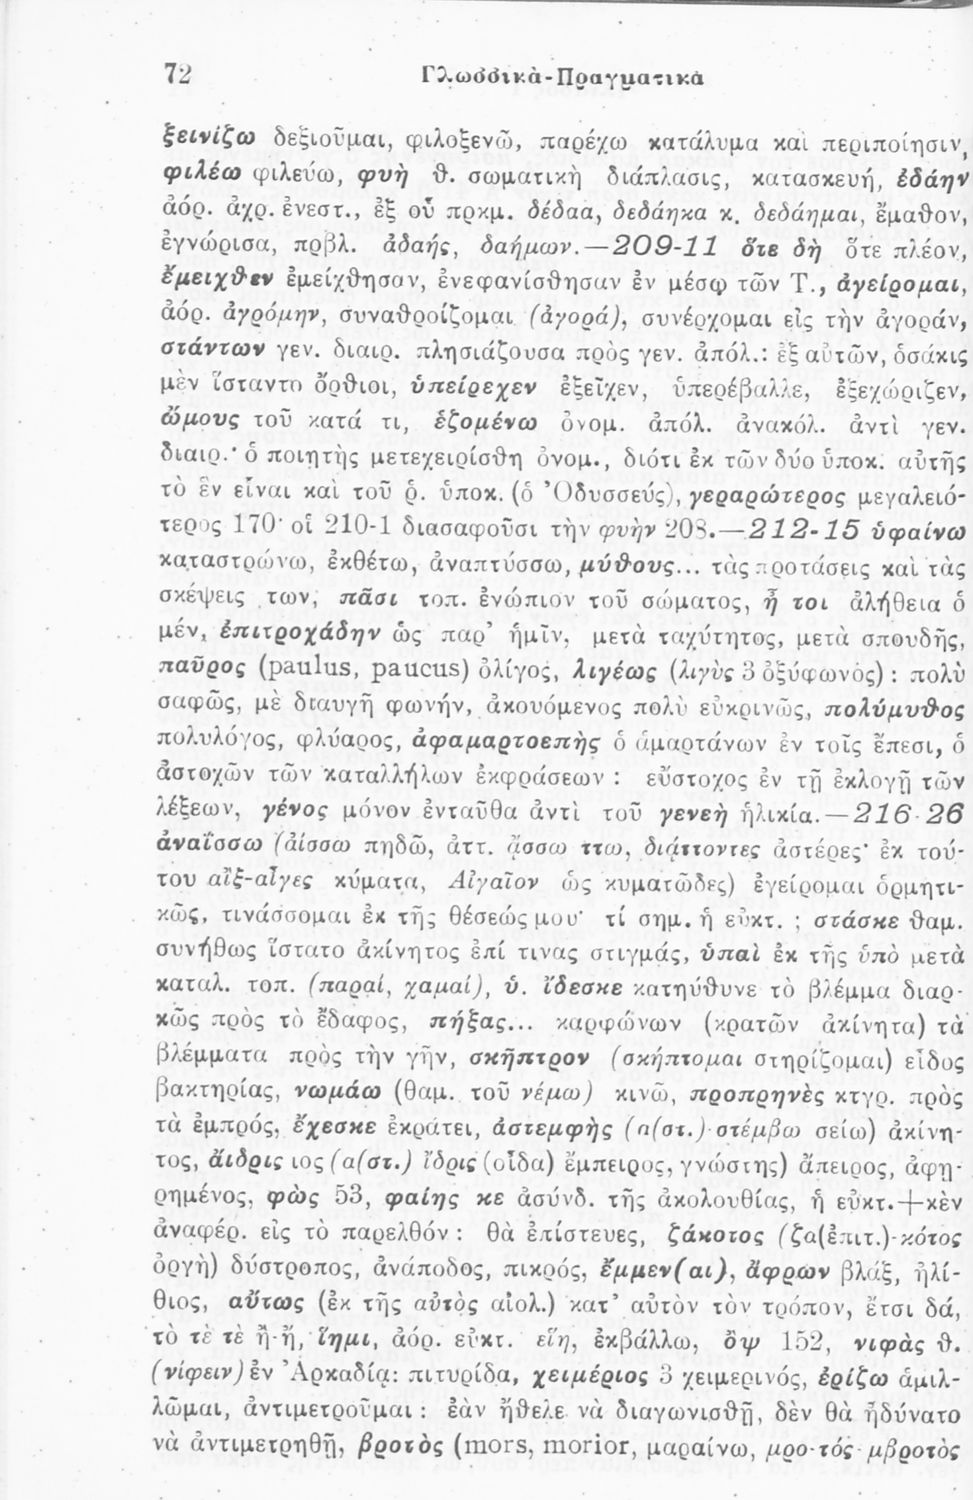 72 Γλωσσικὰ-Πραγματικὰ
ξεινίζω δεξιοῦμαι, φιλοξενῶ, παρέχω κατάλυμα καὶ περιποίησιν,
φιλέω φιλεύω, φυὴ θ. σωματικὴ διάπλασις, κατασκευή, ἐδάην
ἀόρ. ἀχρ. ἐνεστ., ἐξ οὗ πρκμ. δέδαα, δεδάηκα κ. δεδάημαι, ἔμαθον,
ἐγνώρισα, πρβλ. ἀδαής, δαήμων.—209-11 ὅτε δὴ ὅτε πλέον,
ἔμειχθεν ἐμείχθησαν, ἐνεφανίσθησαν ἐν μέσῳ τῶν Τ., ἀγείρομαι,
ἀόρ. ἀγρόμην, συναθροίζομαι (ἀγορά), συνέρχομαι εἰς τὴν ἀγοράν,
στάντων γεν. διαιρ. πλησιάζουσα πρὸς γεν. ἀπόλ.: ἐξ αὐτῶν, ὁσάκις
μὲν ἵσταντο ὄρθιοι, ὑπείρεχεν ἐξεῖχεν, ὑπερέβαλλε, ἐξεχώριζεν,
ὤμους τοῦ κατά τι, ἑζομένω ὀνομ. ἀπόλ. ἀνακόλ. ἀντὶ γεν.
διαιρ.· ὁ ποιητὴς μετεχειρίσθη ὀνομ., διότι ἐκ τῶν δύο ὑποκ. αὐτῆς
τὸ ἓν εἶναι καὶ τοῦ ῥ. ὑποκ. (ὁ Ὀδυσσεύς), γεραρώτερος μεγαλειό-
τερος 170· οἱ 210-1 διασαφοῦσι τὴν φυὴν 208.—212-15 ὑφαίνω
καταστρώνω, ἐκθέτω, ἀναπτύσσω, μύθους... τὰς προτάσεις καὶ τὰς
σκέψεις των, πᾶσι τοπ. ἐνώπιον τοῦ σώματος, ἦ τοι ἀλήθεια ὁ
μέν, ἐπιτροχάδην ὡς παρ' ἡμῖν, μετὰ ταχύτητος, μετὰ σπουδῆς,
παῦρος (paulus, paucus) ὀλίγος, λιγέως (λιγὺς 3 ὀξύφωνος) : πολὺ
σαφῶς, μὲ διαυγῆ φωνήν, ἀκουόμενος πολὺ εὐκρινῶς, πολύμυθος
πολυλόγος, φλύαρος, ἀφαμαρτοεπὴς ὁ ἁμαρτάνων ἐν τοῖς ἔπεσι, ὁ
ἀστοχῶν τῶν καταλλήλων ἐκφράσεων : εὔστοχος ἐν τῇ ἐκλογῇ τῶν
λέξεων, γένος μόνον ἐνταῦθα ἀντὶ τοῦ γενεὴ ἡλικία.—216-26
ἀναΐσσω (ἀίσσω πηδῶ, ἀττ. ᾄσσω ττω, διᾴττοντες ἀστέρες· ἐκ τού-
του αἲξ-αἶγες κύματα, Αἰγαῖον ὡς κυματῶδες) ἐγείρομαι ὁρμητι-
κῶς, τινάσσομαι ἐκ τῆς θέσεώς μου· τί σημ. ἡ εὐκτ. ; στάσκε θαμ.
συνήθως ἵστατο ἀκίνητος ἐπί τινας στιγμάς, ὑπαὶ ἐκ τῆς ὑπὸ μετὰ
καταλ. τοπ. (παραί, χαμαί), ὑ. ἴδεσκε κατηύθυνε τὸ βλέμμα διαρ-
κῶς πρὸς τὸ ἔδαφος, πήξας... καρφώνων (κρατῶν ἀκίνητα) τὰ
βλέμματα πρὸς τὴν γῆν, σκῆπτρον (σκήπτομαι στηρίζομαι) εἶδος
βακτηρίας, νωμάω (θαμ. τοῦ νέμω) κινῶ, προπρηνὲς κτγρ. πρὸς
τὰ ἐμπρός, ἔχεσκε ἐκράτει, ἀστεμφὴς (α(στ.)-στέμβω σείω) ἀκίνη-
τος, ἄιδρις ιος (α(στ.) ἴδρις (οἶδα) ἔμπειρος, γνώστης) ἄπειρος, ἀφῃ-
ρημένος, φὼς 53, φαίης κε ἀσύνδ. τῆς ἀκολουθίας, ἡ εὐκτ.+κὲν
ἀναφέρ. εἰς τὸ παρελθόν : θὰ ἐπίστευες, ζάκοτος (ζα(ἐπιτ.)-κότος
ὀργὴ) δύστροπος, ἀνάποδος, πικρός, ἔμμεν(αι), ἄφρων βλάξ, ἠλί-
θιος, αὔτως (ἐκ τῆς αὐτὸς αἰολ.) κατ' αὐτὸν τὸν τρόπον, ἔτσι δά,
τὸ τὲ τὲ ἢ-ἤ, ἵημι, ἀόρ. εὐκτ. εἵη, ἐκβάλλω, ὂψ 152, νιφὰς θ.
(νίφειν) ἐν Ἀρκαδίᾳ: πιτυρίδα, χειμέριος 3 χειμερινός, ἐρίζω ἁμιλ-
λῶμαι, ἀντιμετροῦμαι : ἐὰν ἤθελε νὰ διαγωνισθῇ, δὲν θὰ ἠδύνατο
νὰ ἀντιμετρηθῇ, βροτὸς (mors, morior, μαραίνω, μρο-τός-μβροτὸς